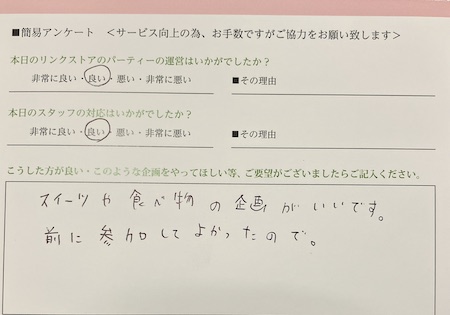 ■簡易アンケート ＜サービス向上の為、お手数ですがご協力をお願い致します＞
本日のリンクストアのパーティーの運営はいかがでしたか？
非常に良い・良い・悪い・非常に悪い ■その理由
本日のスタッフの対応はいかがでしたか？
非常に良い・良い・悪い・非常に悪い ■その理由
こうした方が良い・このような企画をやってほしい等、ご要望がございましたらご記入ください。
スイーツや食べ物の企画がいいです。
前に参加してよかったので。